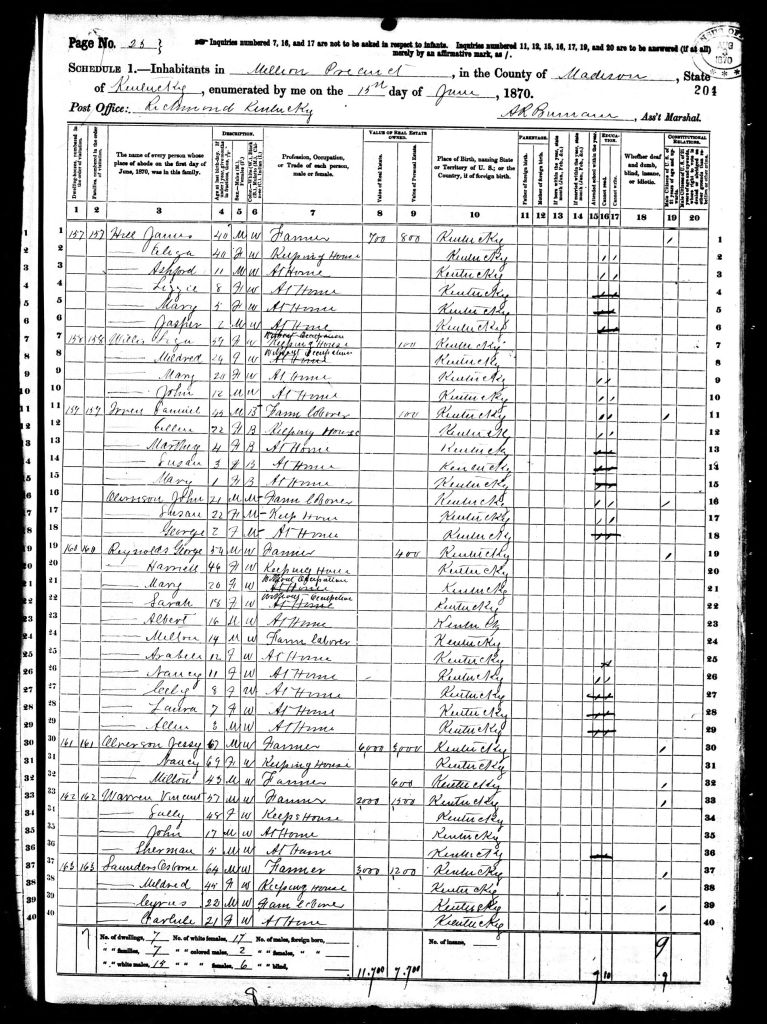 Page No. 25 } Inquiries numbered 7, 16, and 17 are not to be asked in respect to infants. Inquiries numbered 11, 12, 15, 16, 17, 19, and 20 are to be answered (if at all) merely by an affirmative mark, as /.
SCHEDULE 1.—Inhabitants in Million Precinct, in the County of Madison, State
of Kentucky, enumerated by me on the 15th day of June, 1870. 204
Post Office: Richmond Kentucky Ass't Marshal.
DESCRIPTION. VALUE OF REAL ESTATE OWNED. PARENTAGE. EDUCATION. CONSTITUTIONAL RELATIONS.
Dwelling-houses, numbered in the order of visitation. Families, numbered in the order of visitation. The name of every person whose place of abode on the first day of June, 1870, was in this family. Profession, Occupation, or Trade of each person, male or female. Value of Real Estate. Value of Personal Estate. Place of Birth, naming State or Territory of U. S.; or the Country, if of foreign birth. Father of foreign birth. Mother of foreign birth. Attended school within the year. Cannot read. Cannot write. Whether deaf and dumb, blind, insane, or idiotic.
1 2 3 4 5 6 7 8 9 10 11 12 13 14 15 16 17 18 19 20
1 157 157 Hill James 40 M W Farmer 700 800 Kentucky / 1
2 — Eliza 40 F W Keeping House Kentucky / / 2
3 — Ashford 11 M W At Home Kentucky / / 3
4 — Lizzie 8 F W At Home Kentucky 4
5 — Mary 5 F W At Home Kentucky 5
6 — Jasper 2 M W At Home Kentucky 6
7 158 158 F W Without Occupation Keeping House 100 Kentucky 7
8 — Mildred 24 F W Without Occupation At Home Kentucky 8
9 — Mary 20 F W At Home Kentucky / / 9
10 — John 12 M W At Home Kentucky / / 10
11 159 159 Samuel 45 M B Farm Labover 100 Kentucky / / / 11
12 — 22 F B Keeping House / / 12
13 — Marthy 4 F B At Home Kentucky 13
14 — Susan 3 F B At Home Kentucky 14
15 — Mary 1 F B At Home Kentucky 15
16 John 21 M M Farm Labover Kentucky / / / 16
17 — Susan 22 F M Keep House Kentucky / / 17
18 — George 2 F M At Home Kentucky 18
19 160 160 Reynolds George 54 M W Farmer 400 Kentucky / 19
20 — 46 F W Keeping House Kentucky 20
21 — Mary 20 F W Without Occupation At Home Kentucky 21
22 — Sarah 18 F W Without Occupation At Home Kentucky 22
23 — Albert 16 M W At Home 23
24 — Milton 14 M W Farm Laborer Kentucky 24
25 — 12 F W At Home Kentucky 25
26 — Nancy 11 F W At Home Kentucky / / 26
27 — 8 F W At Home Kentucky 27
28 — Laura 7 F W At Home Kentucky 28
29 — Allen 3 M W At Home Kentucky 29
30 161 161 Olverson Jessy 67 M W Farmer 6000 3000 Kentucky / 30
31 — Nancy 69 F W Keeping House Kentucky 31
32 — Milton 43 M W Farmer 600 Kentucky / 32
33 162 162 Warren Vincent 57 M W Farmer 2000 1500 Kentucky / 33
34 — Sally 48 F W Keeps House Kentucky 34
35 — John 17 M W At Home Kentucky 35
36 — Sherman 5 M W At Home Kentucky 36
37 163 163 Saunders Osborne 64 M W Farmer 3000 1200 Kentucky / 37
38 — Mildred 45 F W Keeping House Kentucky 38
39 — Cyrus 22 M W Farm Labover Kentucky / 39
40 — 21 F W At Home Kentucky 40
7 No. of dwellings, 7 No. of white females, 17 No. of males, foreign born, No. of insane, 9
" " families, 7 " " colored males, 2 " " females, " "
" " white males, 15 " " females, 6 " " blind, 11.700 7.700 9 10 9